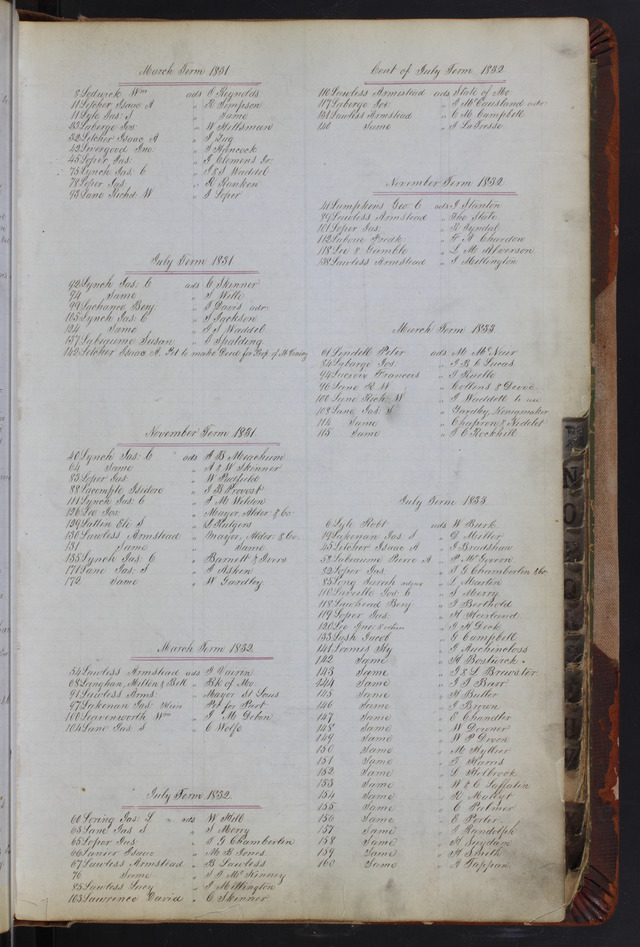 March Term 1831
8 Sedwick Wm ads C Reynolds
11 Letcher Isaac A " R Simpson
11 Lyle Jas. S " Same
23 Laberge Jos " W Millsman
32 Letcher Isaac A " J
42 Livergood Jno. " J Hancock
45 Loper Jas. " J Clemens Jr.
75 Lynch Jas. C " J & S Waddel
78 Loper Jas " R Ranken
93 Lane Richd. W " J Loper
July Term 1831
92 Lynch Jas. C ads C Skinner
94 Same " J Wills
99 Lachance Benj " J Davis adr.
105 Lynch Jas. C " J Jackson
124 Same " J S Waddel
137 Labeaume Susan " J Spalding
142 Letcher Isaac A. Pet to make Deed for
November Term 1831
40 Lynch Jas. C ads A B Meachum
64 Same " A & W Skinner
83 Loper Jas. " W Padfield
88 Lacompte Isidore " S B Provost
111 Lynch Jas. C " J M Welden
126 Lee Jas. " Mayor, Alder & Co
129 Latten Elv S " L Rutgers
130 Lawless Armstead " Mayor, Alder & Co.
131 Same " Same
135 Lynch Jas. C " Barnett & Ivers
171 Lane Jas. S " J Ashton
172 Same " W Yardley
March Term 1832
54 Lawless Armstead ads J Cairin
68 Lingham, Millin & Bell " Bk of Mo.
91 Lawless Arms. " Mayor St Louis
97 Lakenan Jas. " Pet for Part
100 Leavenworth Wm " J M Debon
104 Lane Jas. S " C Wolfe
July Term 1832.
60 Loring Jas. L " ads W Hill
63 Lane Jas S " S Merry
65 Loper Jas " J G Chamberlin
66 Lanier Isaac " M B Jones.
67 Lawless Armstead " B Lawless
76 Same " J D McKinney
85 Lawless Lucy " J Millington
103 Lawrence David " C Skinner
Cont of July Term 1832.
110 Lawless Armistead ads State of Mo
117 Laberge Jos " J McCausland adr
131 Lawless Armstead " C M Campbell
140 Same " A LaForsse
November Term 1832.
41 Lampkins Geo. C ads J Stanton
89 Lawless Armstead " The State
101 Loper Jas " R Tyndal
112 Laboue Fredk " F A Chardon
118 Lee & Gamble " L M Alverson
138 Lawless Armstead " J Millington
March Term 1833
61 Lindell Peter ads M McNair
84 Laberge Jos. " J B C Lucas
94 Lacroix Francois " J Ruelle
96 Lane R W " Collins &
100 Lane Rich. W " J Waddell to use
108 Lane Jas. S " Yardly, Newmaker
114 Same " Chapron & Nidelet
115 Same " T C Rockhill
July Term 1833
6 Lyle Robt ads W Burk
19 Lakenan Jas. S " D Miller
45 Letcher Isaac A " J Bradshaw
52 Labeaume Pierre A " P McGovern
82 Loper Jas. " J G Chamberlin &Co.
85 Long Lurrah " L Martin
110 Laville Jos. C " S Merry
118 Lawhead Benj " J Berthold
119 Loper Jas. " H Heirland
120 Lee Jno " J H Dick
133 Losh Jacob " G Campbell
141 Loomis Hy " J Auchincloss
142 Same " A Bostwick
143 Same " J & L Brewster
144 Same " J J Barr
145 Same " H Butler
146 Same " J Brown
147 Same " E Chandler
148 Same " W Downer
149 Same " W P Dixon
150 Same " M Hyllier
151 Same " T Harris
152 Same " L Holbrook
153 Same " W & C Laffatin
154 Same " R Manyt
155 Same " C Palmer
156 Same " E Porter
157 Same " J Randolph
158 Same " H Suydam
159 Same " H Smith
160 Same " A Tappan
N
O